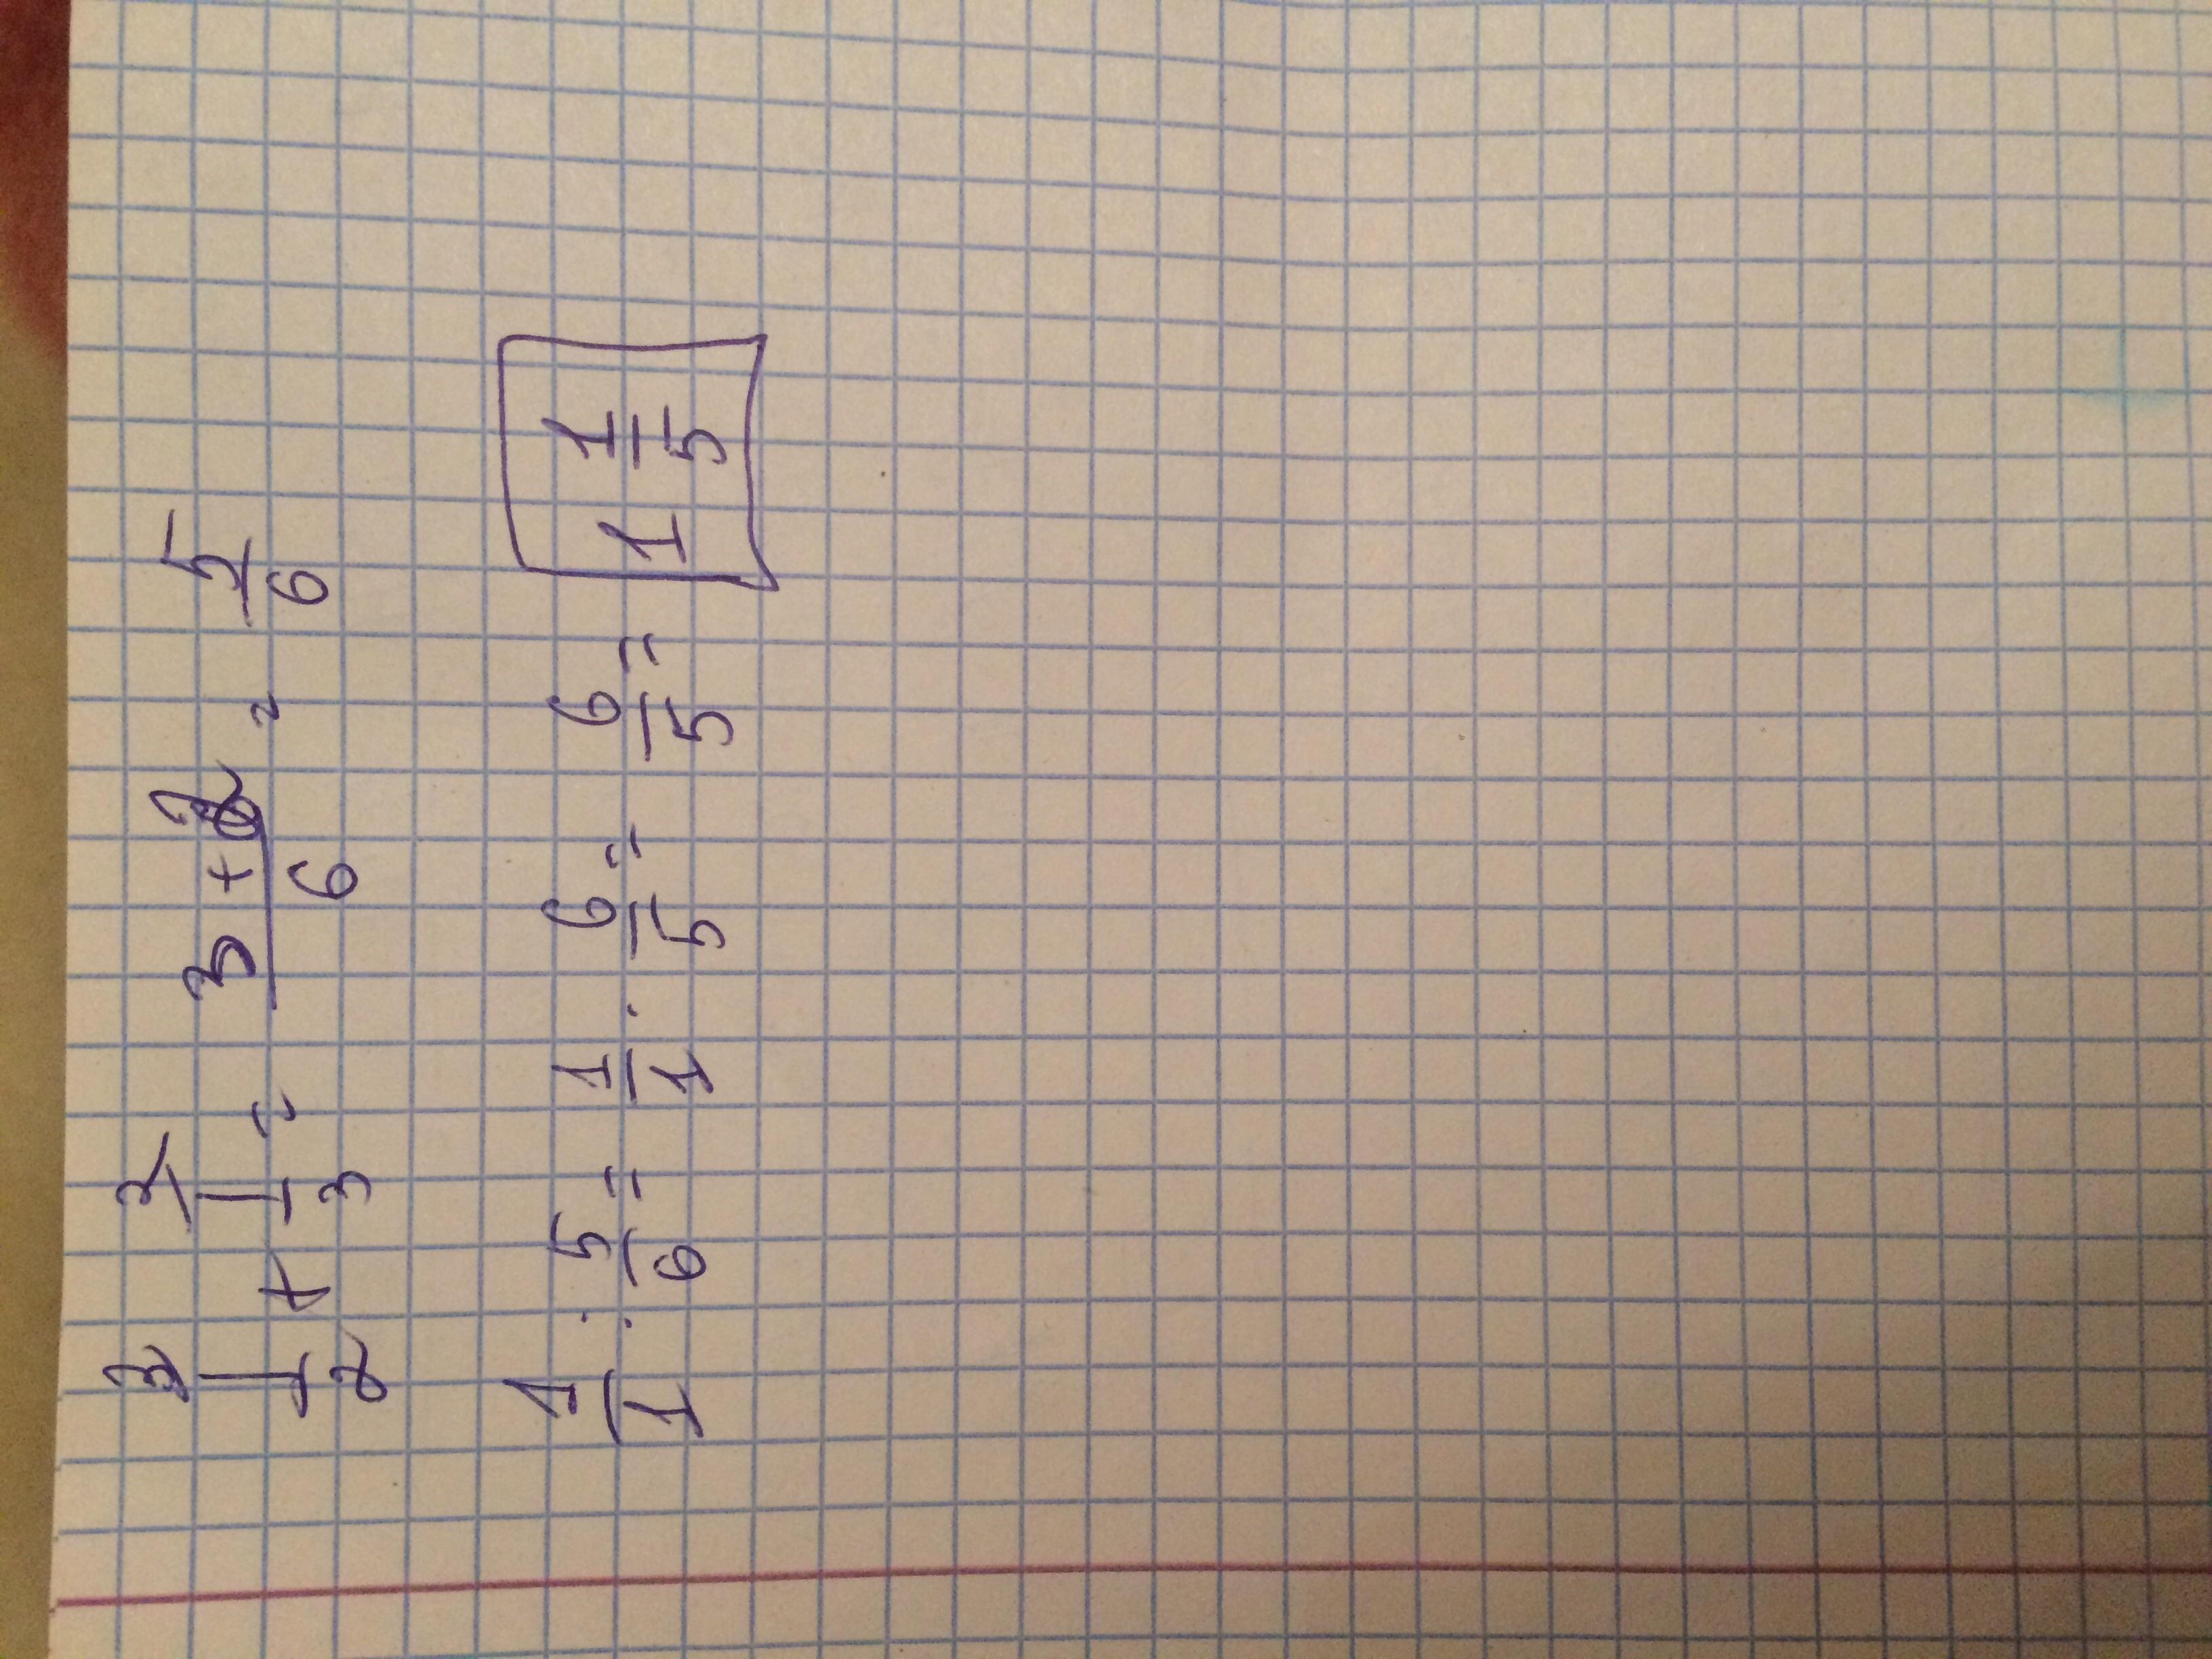 3/ 1/2 + 2/ 1/3 = (3+2)/6 = 5/6
1/1 : 5/6 = 1/1 · 6/5 = 6/5 = 1 1/5